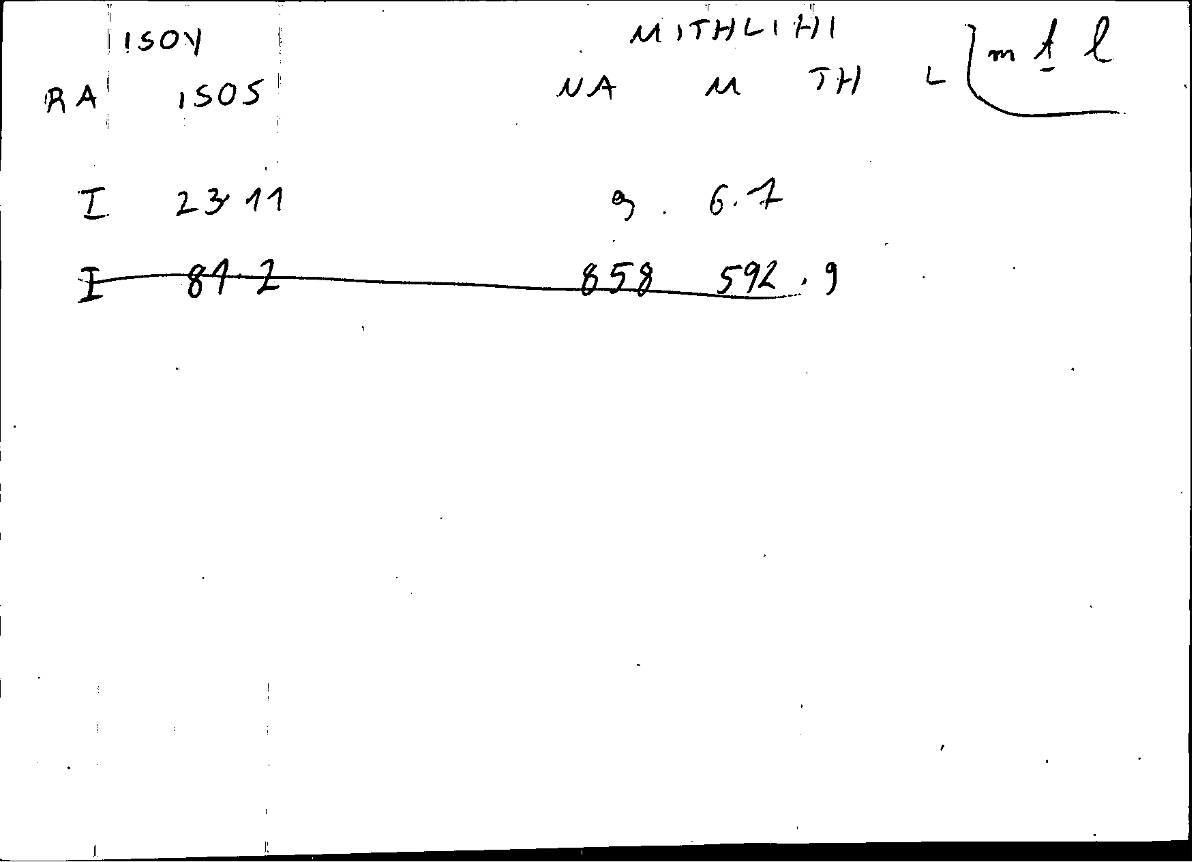 ISOY MITHLIHI
RA ISOS NA M TH L m ṯ l
I 23 11 9 . 6.7
I 81.2 858 592.9